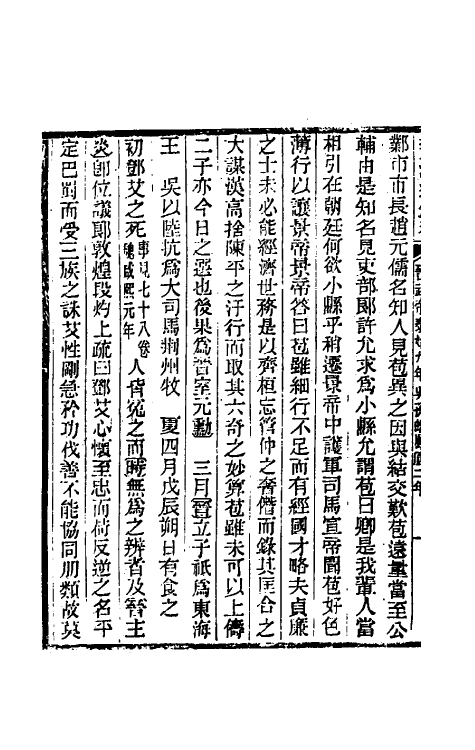 晉武帝泰始九年 吳孫皓鳳凰二年
鄴市市長趙元儒名知人見苞異之因與結交歎苞遠量當至公
輔由是知名見吏部郎許允求爲小縣允謂苞曰卿是我輩人當
相引在朝廷何欲小縣乎稍遷景帝中護軍司馬宣帝聞苞好色
薄行以讓景帝景帝答曰苞雖細行不足而有經國才略夫貞廉
之士未必能經濟世務是以齊桓忘管仲之奢僭而錄其匡合之
大謀漢高捨陳平之汙行而取其六奇之妙算苞雖未可以上儔
二子亦今日之選也後果爲晉室元勳 三月晉立子祗爲東海
王 吳以陸抗爲大司馬荊州牧 夏四月戊辰朔日有食之
初鄧艾之死事見七十八卷魏咸熙元年人皆冤之而時無爲之辨者及晉主
炎卽位議郎敦煌段灼上疏曰鄧艾心懷至忠而荷反逆之名平
定巴蜀而受三族之誅艾性剛急矜功伐善不能協同朋類故莫